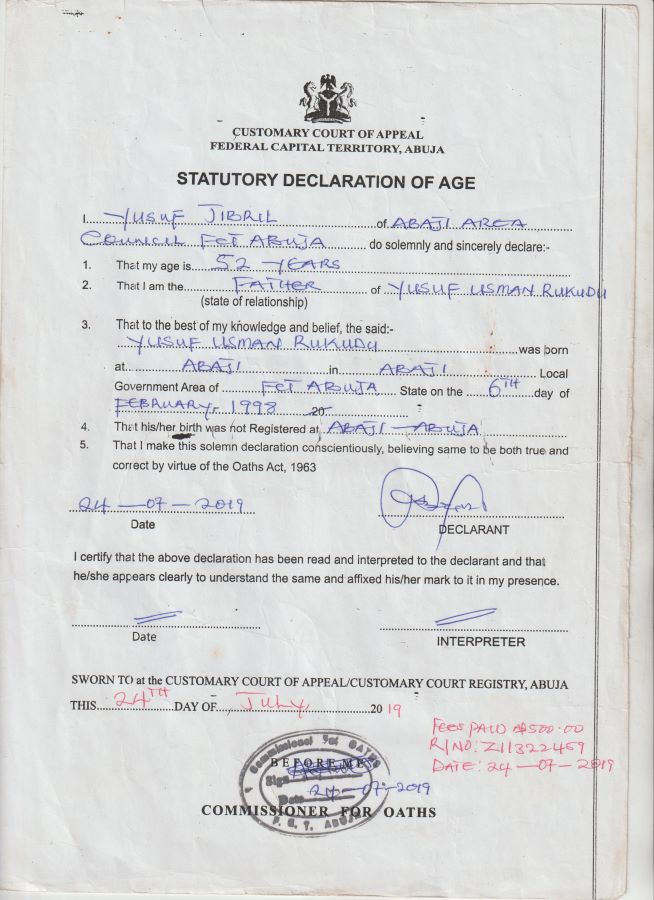 CUSTOMARY COURT OF APPEAL
FEDERAL CAPITAL TERRITORY, ABUJA
STATUTORY DECLARATION OF AGE
I YUSUF JIBRIL of ABAJI AREA
COUNCIL FCT ABUJA do solemnly and sincerely declare:-
1. That my age is 52 YEARS
2. That I am the FATHER of YUSUF USMAN RUKUDU
(state of relationship)
3. That to the best of my knowledge and belief, the said:-
YUSUF USMAN RUKUDU was born
at ABAJI in ABAJI Local
Government Area of FCT ABUJA State on the 6TH day of
FEBRUARY 1998 20
4. That his/her birth was not Registered at ABAJI - ABUJA
5. That I make this solemn declaration conscientiously, believing same to be both true and
correct by virtue of the Oaths Act, 1963
24-07-2019
Date DECLARANT
I certify that the above declaration has been read and interpreted to the declarant and that
he/she appears clearly to understand the same and affixed his/her mark to it in my presence.
Date INTERPRETER
SWORN TO at the CUSTOMARY COURT OF APPEAL/CUSTOMARY COURT REGISTRY, ABUJA
THIS 24TH DAY OF JULY 2019
FEES PAID ₦500.00
R/NO: Z11322459
DATE: 24-07-2019
Commissioner For OATHS
BEFORE ME
Sign
Date 24-07-2019
COMMISSIONER FOR OATHS
F. C. T. ABUJA